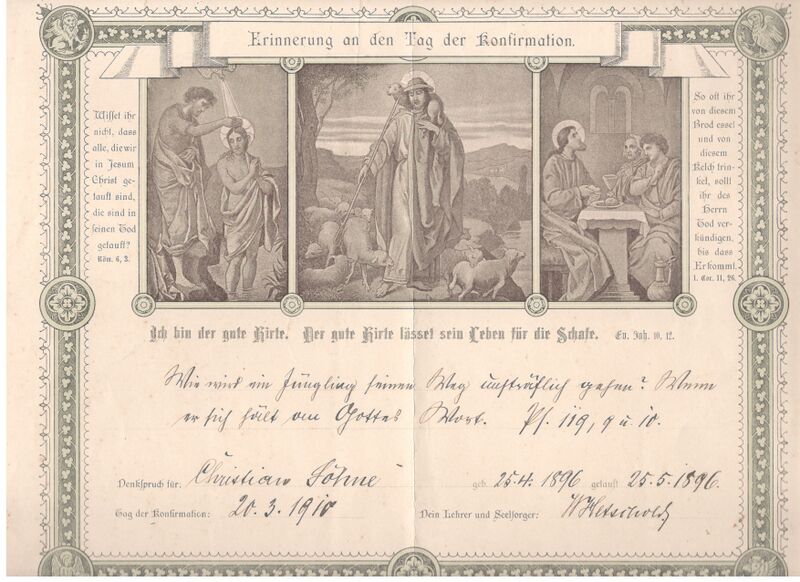 Erinnerung an den Tag der Konfirmation.
Wisset ihr
nicht, dass
alle, die wir
in Jesum
Christ ge-
tauft sind,
die sind in
seinen Tod
getauft?
Röm. 6, 3.
So oft ihr
von diesem
Brod esset
und von
diesem
Kelch trin-
ket, sollt
ihr des
Herrn
Tod ver-
kündigen,
bis dass
Er kommt.
1. Cor. 11, 26.
Ich bin der gute Hirte. Der gute Hirte lässet sein Leben für die Schafe. Ev. Joh. 10, 12.
Wie wird ein Jüngling seinen Weg unsträflich gehen? Wenn
er sich hält an Gottes Wort. Ps. 119, 9 u. 10.
Denkspruch für: Christian Söhne geb. 25.4. 1896 getauft 25.5.1896.
Tag der Konfirmation: 20.3.1910 Dein Lehrer und Seelsorger: